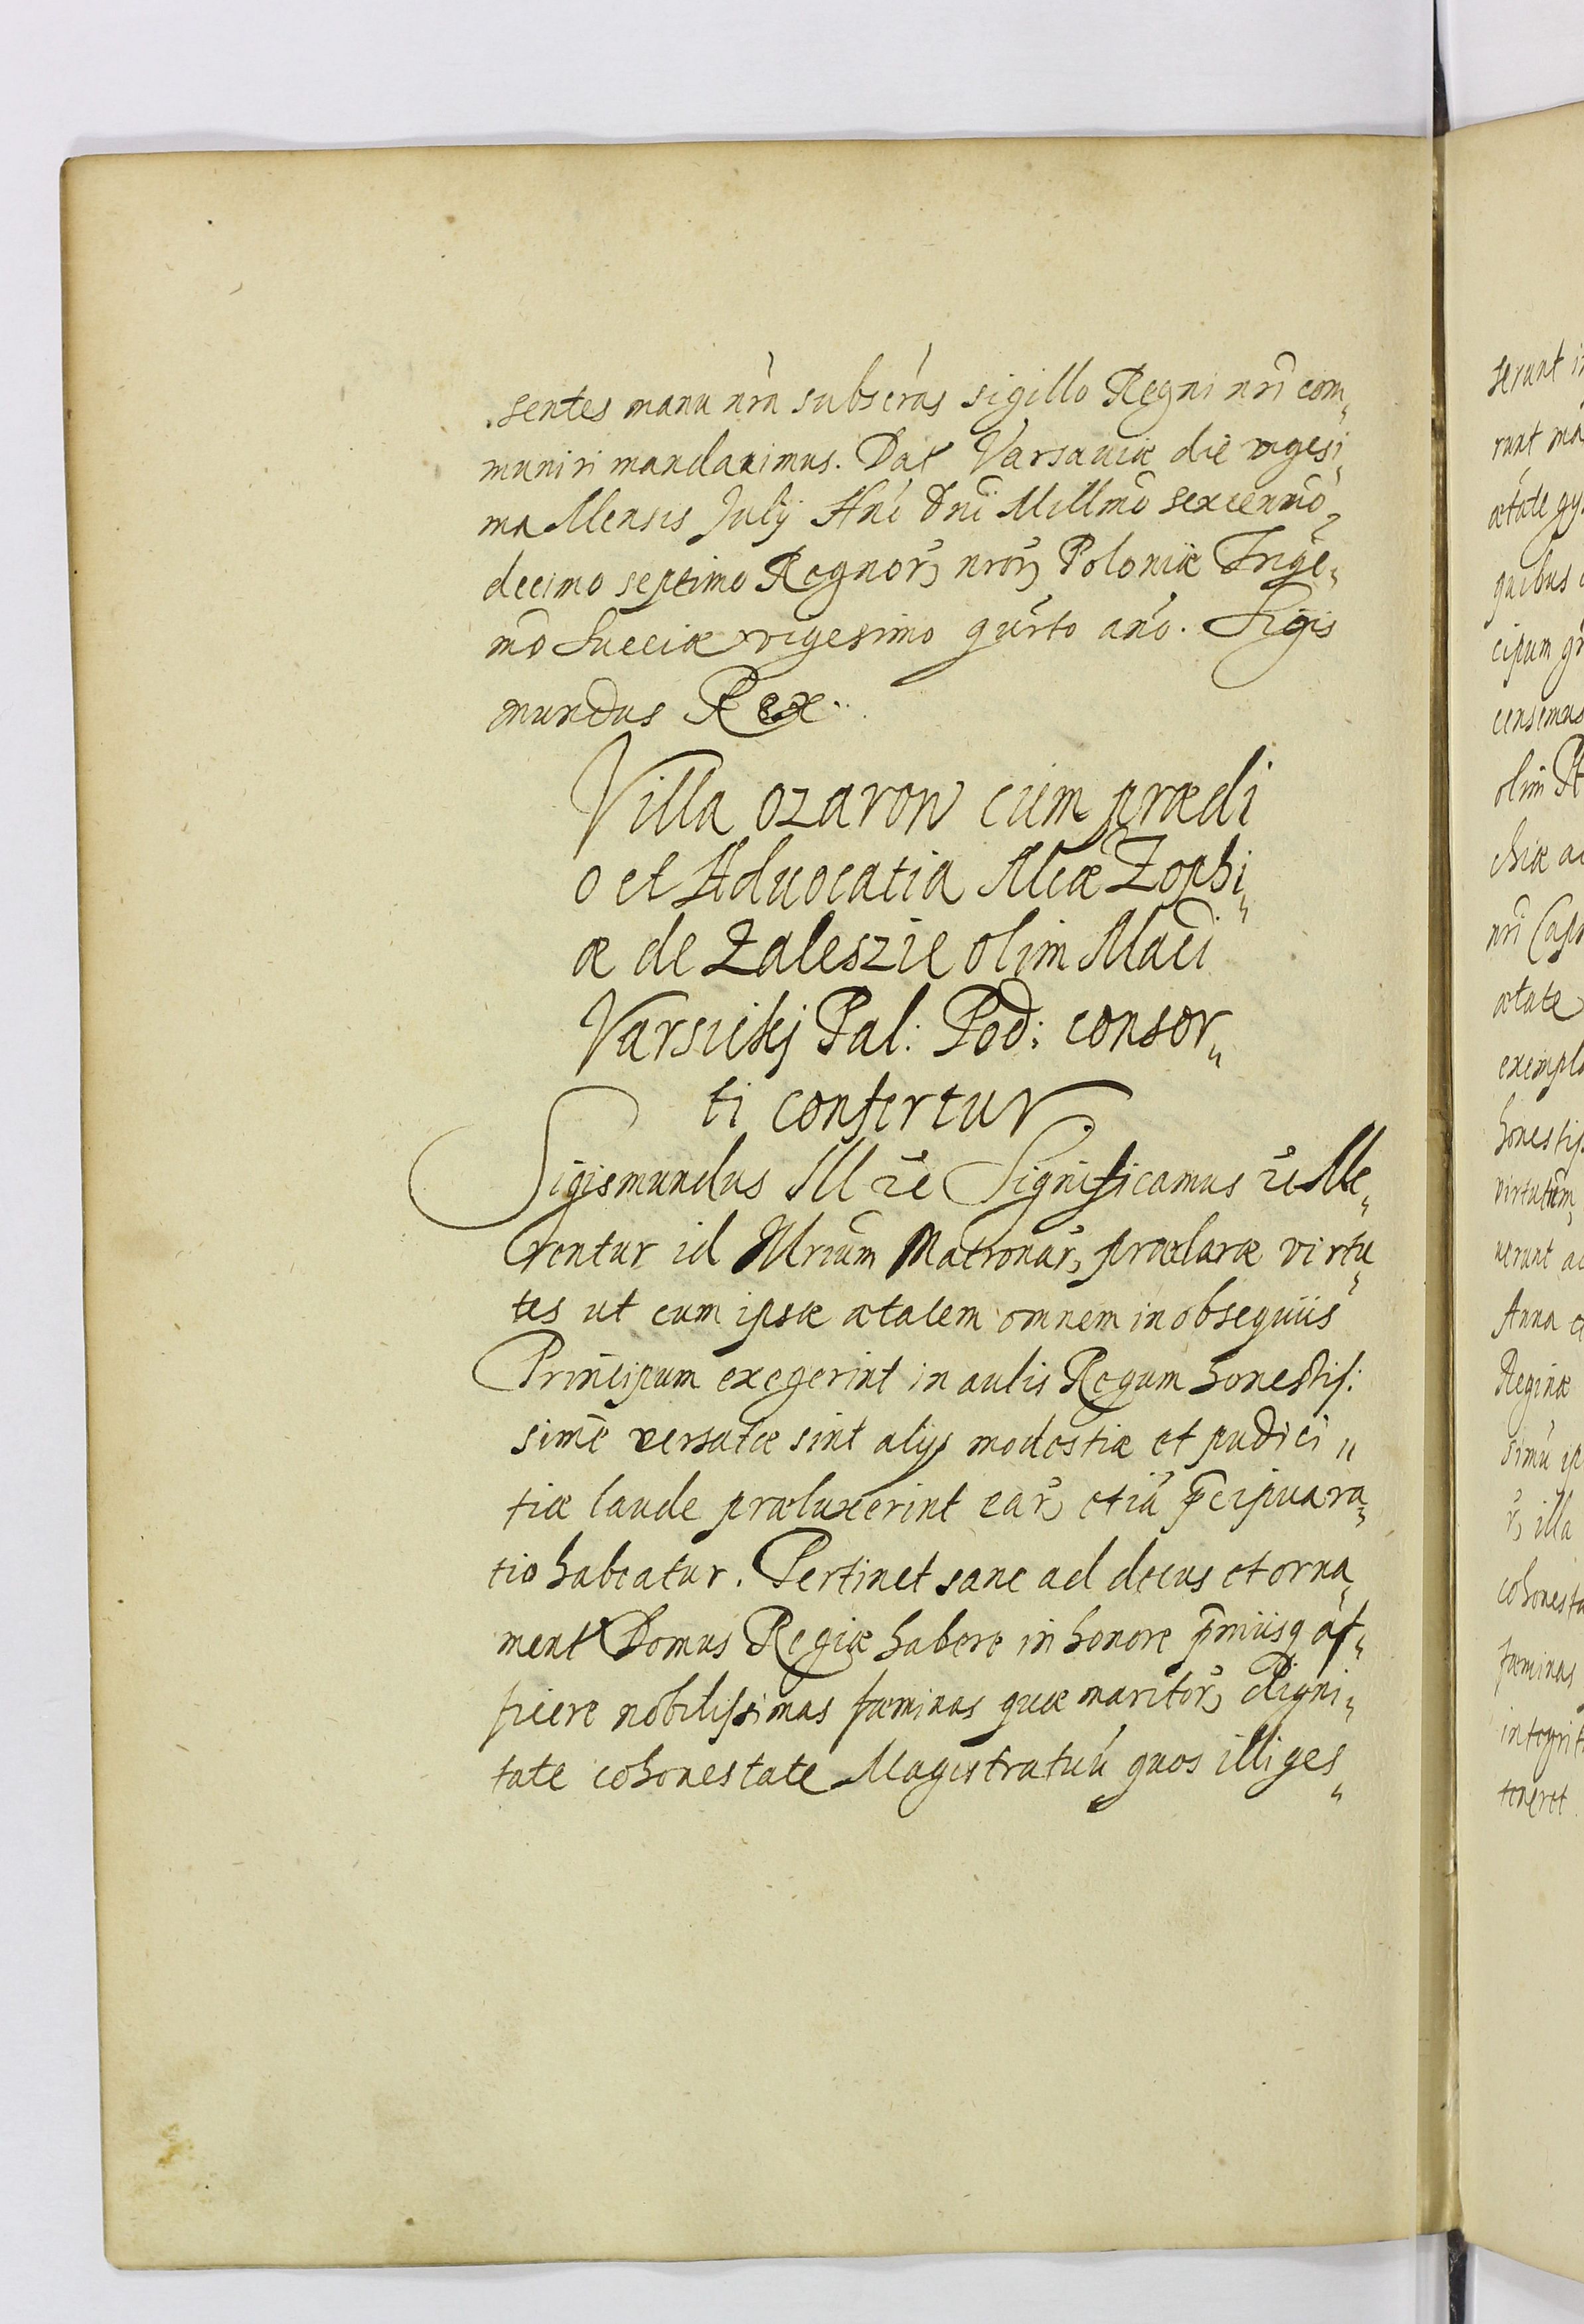 sentes manu nrã subscrás sigillo Regni nrĩ com„
muniri mandauimus. Dat Varsauiæ die vigesi„
ma Mensis Julij Añi Dñi Millmõ sexcennõ„
decimo septimo Regnor, nror, Poloniæ Trige„
mo Sueciæ vigesimo qũrto anõ. Sigis
mundus Rex.
Villa Ozarow cum prædi
o et Aduocatia Mcæ Zophi„
æ de Zaleszie olim Maci
Varsickj Pal: Pod: consor„
ti confertur
Sigismundus III rẽ Significamus rẽ Me„
rentur id Illrium Matronar, præclaræ virtu„
tes ut cum ipsæ ætatem omnem in obsequiis
Principum exegerint in aulis Regum honestis:
simẽ versatæ sint alijs modestiæ et pudici„
tiæ laude præluxerint ear, etiũ p̃cipua ra„
tio habeatur. Pertinet sane ad decus et orna„
ment Domus Regiæ habere in honore p̃miisq, af„
ficere nobilissimas fæminas quæ maritor, digni„
tate cohonestatæ Magistratuũ quos illi ges„
serunt
runt
ætate
quibus
cipum
censemus
olim
chiæ
nrĩ
ætate
honestis
virtutum,
nerunt
Anna
Reginæ
simũ
r, illa
fæminas
teneret